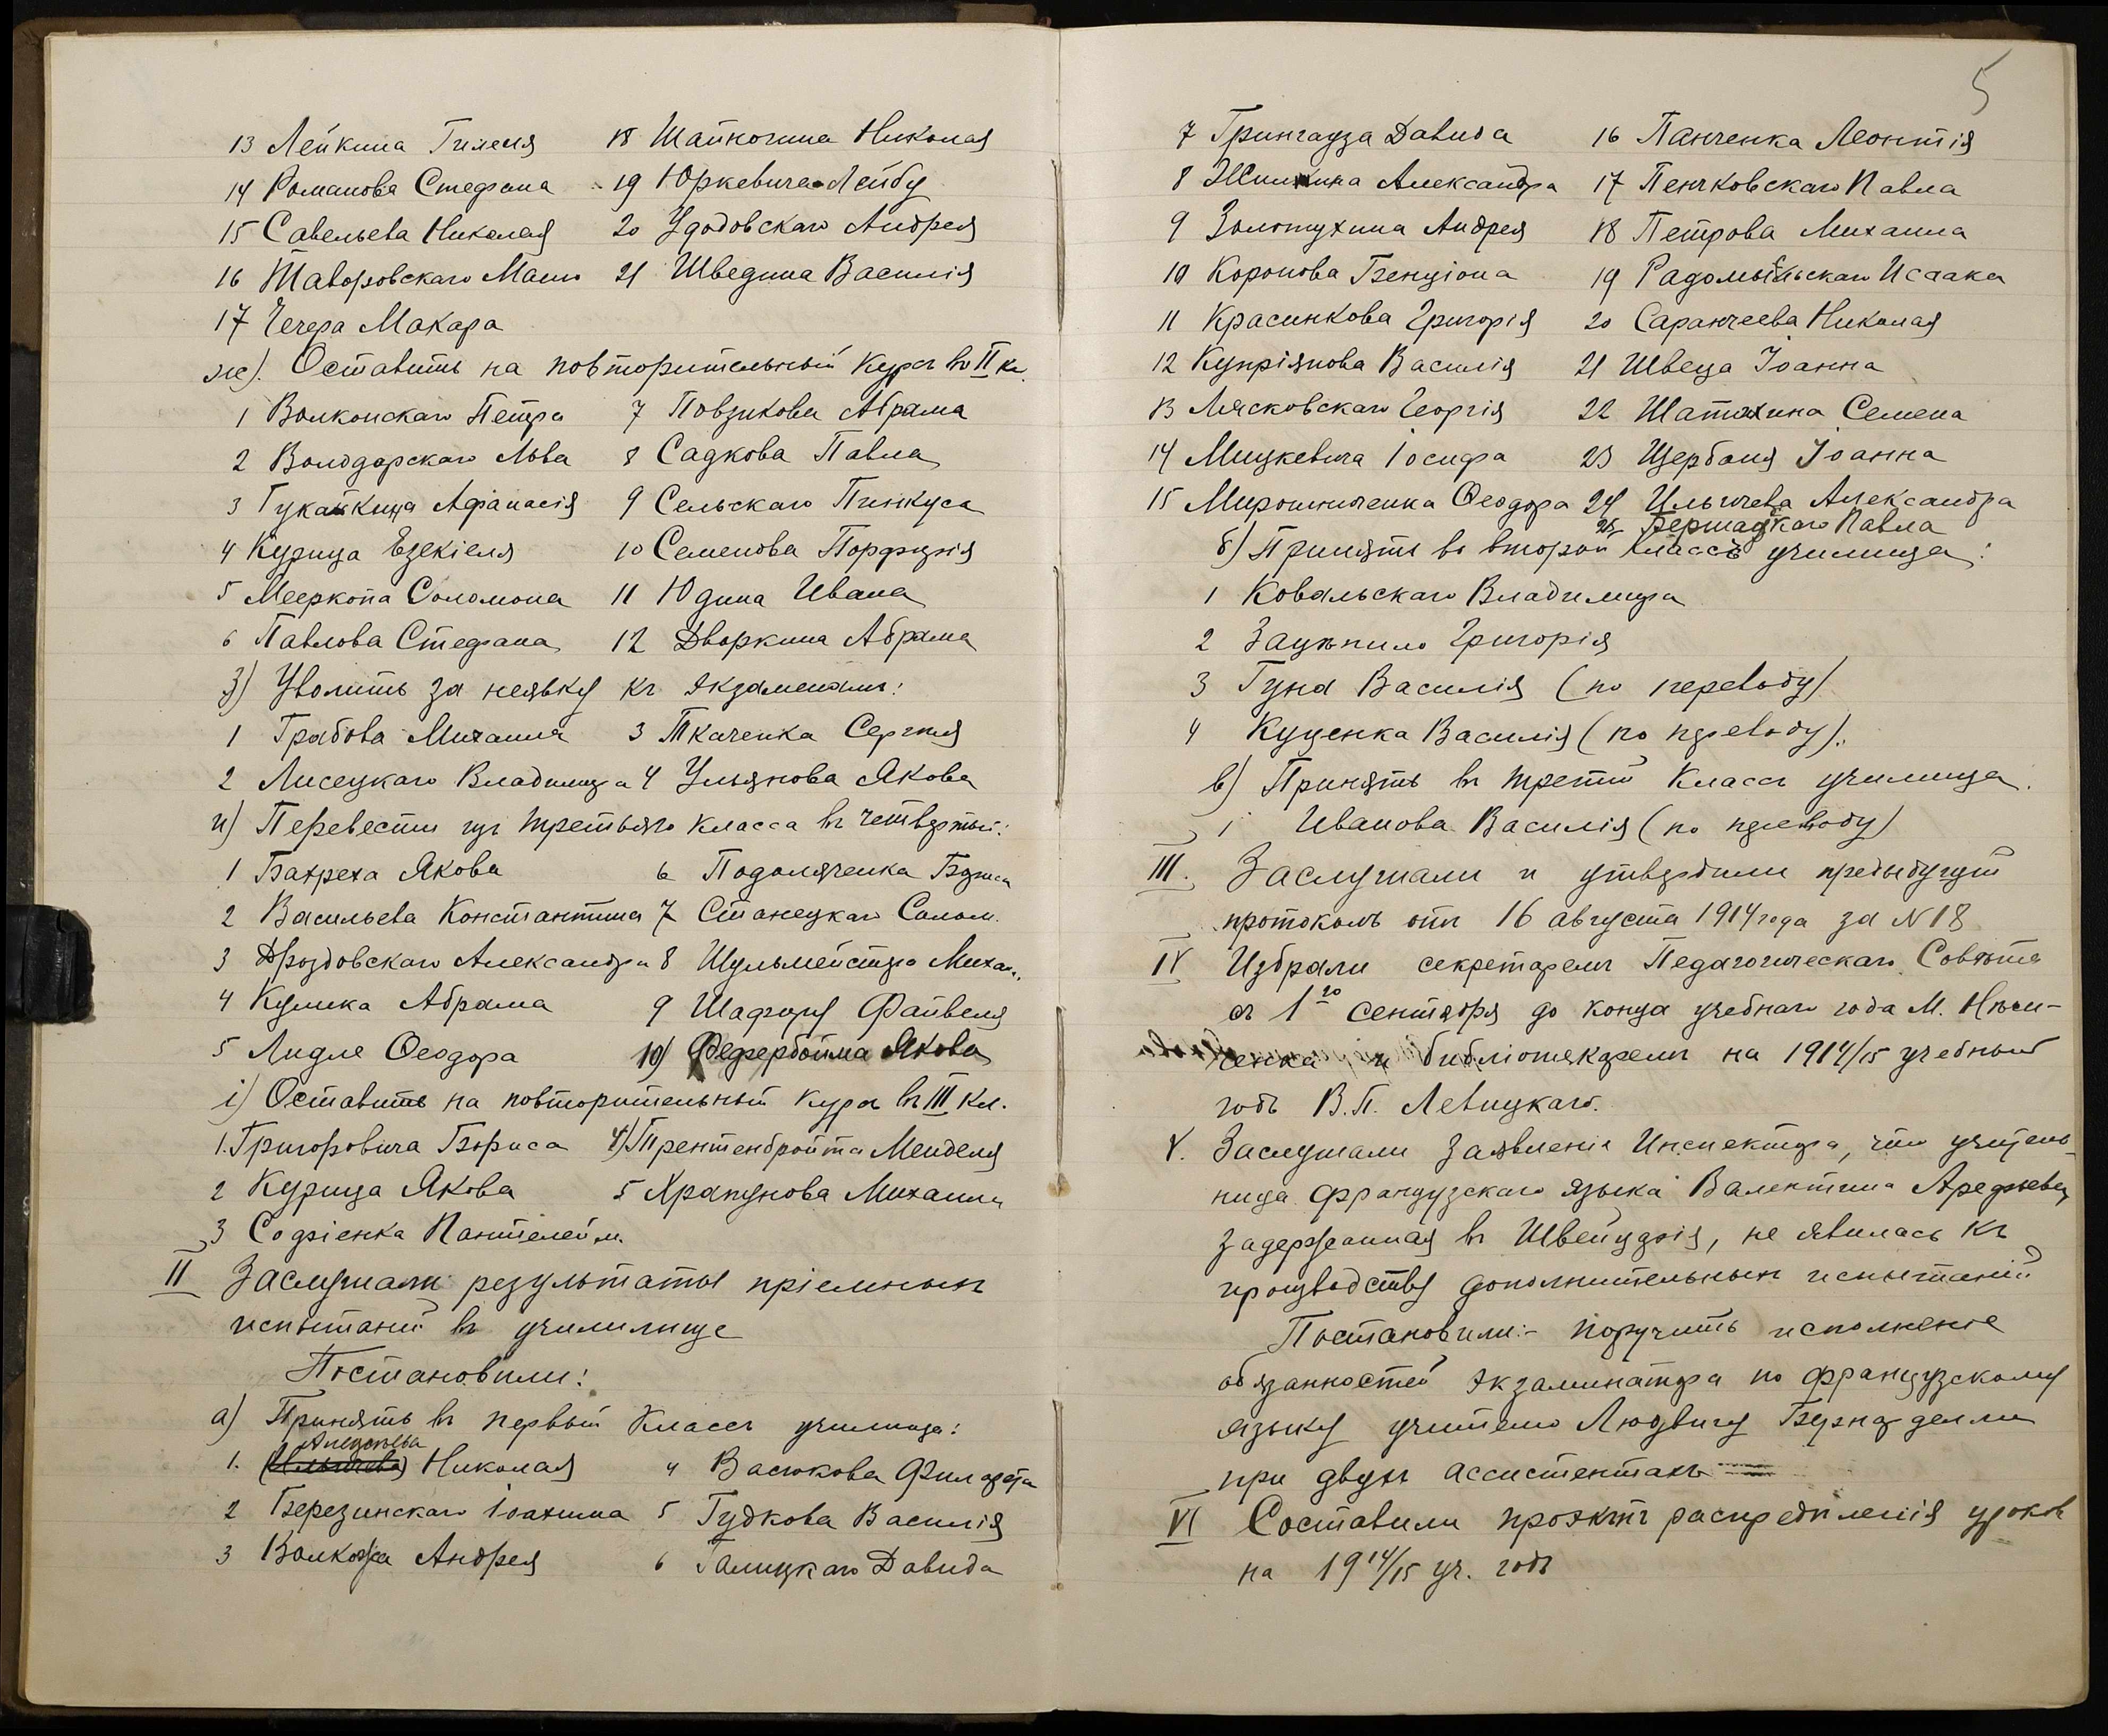 13 Лейкина Гилеля 18 Шапкочина Николая
14 Романова Стефана 19 Юркевича Лейбу
15 Савельева Николая 20 Удодовскаго Андрея
16 Таворовскаго 21 Шведина Василія
17 Чечера Макара
ж). Оставить на повторительный курсъ во II кл.
1 Волконскаго Петра 7 Повзикова Абрама
2 Володарскаго Льва 8 Садкова Павла
3 Афанасія 9 Сельскаго Пинкуса
4 Курица Езекіеля 10 Семенова Порфирія
5 Мееркопа Соломона 11 Юдина Ивана
6 Павлова Стефана 12 Дворкина Абрама
з) Уволить за неявку къ экзаменамъ:
1 Грабова Михаила 3 Ткаченка Сергѣя
2 Лисецкаго Владимира 4 Ульянова Якова
и) Перевести изъ третьяго класса въ четвертый:
1 Бахреха Якова 6 Подоляченка Бориса
2 Васильева Константина 7 Станецкаго Солом.
3 Дроздовскаго Александра 8 Шульмейстра Михаи.
4 Кулика Абрама 9 Шафиру Файвеля
5 Лидле Ѳеодора 10) Фефербойма Якова
і) Оставить на повторительный курсъ въ III кл.
1. Григоровича Бориса 4) Трентенбройта Менделя
2 Курица Якова 5 Храпунова Михаила
3 Софіенка Пантелейм.
II Заслушали результаты пріемныхъ
испытаній въ училилище
Постановили:
а) Принять въ первый классъ училища:
Алексѣева
1. (Ильичева) Николая 4 Васюкова Филарета
2 Березинскаго Іоахима 5 Гудкова Василія
3 Волкова Андрея 6 Галицкаго Давида
5
7 Грингауза Давида 16 Панченка Леонтія
8 Жилкина Александра 17 Пенчковскаго Павла
9 Золотухина Андрея 18 Петрова Михаила
10 Коропова Бенціона 19 Радомысльскаго Исаака
11 Красинкова Григорія 20 Саранчеева Николая
12 Купріянова Василія 21 Швеца Іоанна
13 Лясковскаго Георгія 22 Шатохина Семена
14 Мицкевича Іосифа 23 Щербаня Іоанна
15 Мирошниченка Ѳеодора 24 Ильичева Александра
25 Бершадскаго Павла
б) Принять во второй классъ училища:
1 Ковальскаго Владимира
2 Зацѣпило Григорія
3 Гуна Василія (по переводу)
4 Куценка Василія (по переводу).
в) Принять въ третій классъ училища.
1 Иванова Василія (по переводу)
III. Заслушали и утвердили предыдущій
протоколъ отъ 16 августа 1914 года за N 18
IV Избрали секретаремъ Педагогическаго Совѣта
съ 1го сентября до конца учебнаго года М. Нѣси-
ченка и библіотекаремъ на 1914/15 учебный
годъ В.П. Левицкаго.
V. Заслушали заявленіе Инспектора, что учитель-
ница французскаго языка Валентина Арефьева,
задержанная въ Швейцаріи, не явилась къ
производству дополнительныхъ испытаній
Постановили:- поручить исполненіе
обязанностей экзаминатора по французскому
языку учителю Людвигу Бернарделли
при двухъ ассистентахъ
VI Составили проэктъ распредѣленія уроковъ
на 1914/15 уч. годъ